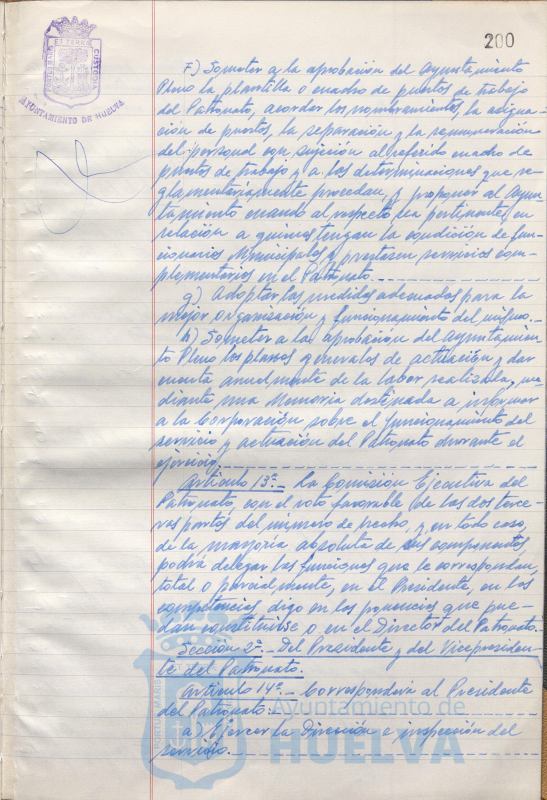 200
PORTUS MARIS ET TERRAE CUSTODIA
AYUNTAMIENTO DE HUELVA
F) Someter a la aprobación del Ayuntamiento
Pleno la plantilla o cuadro de puestos de trabajo
del Patronato, acordar los nombramientos, la asigna-
ción de puestos, la separación y la remuneración
del personal con sujeción al referido cuadro de
puestos de trabajo y a las determinaciones que re-
glamentariamente procedan, y proponer al Ayun-
tamiento cuando al respecto sea pertinente, en
relación a quienes tengan la condición de fun-
cionarios Municipales y prestasen servicios com-
plementarios en el Patronato.
g) Adoptar las medidas adecuadas para la
mejor organización y funcionamiento del mismo.-
h) Someter a la aprobación del Ayuntamien-
to Pleno los planes generales de actuación y dar
cuenta anualmente de la labor realizada, me-
diante una Memoria destinada a informar
a la Corporación sobre el funcionamiento del
servicio y actuación del Patronato durante el
ejercicio.
Artículo 13º.- La Comisión Ejecutiva del
Patronato, con el voto favorable de las dos terce-
ras partes del número de hecho, y en todo caso,
de la mayoría absoluta de sus componentes,
podrá delegar las funciones que le correspondan,
total o parcialmente, en el Presidente, en las
competencias, digo en las ponencias que pue-
dan constituirse o en el Director del Patronato.-
Sección 2ª.- Del Presidente y del Vicepresiden-
te del Patronato.
Artículo 14º.- Corresponderá al Presidente
del Patronato:
a) Ejercer la Dirección e inspección del
servicio.
Ayuntamiento de
HUELVA